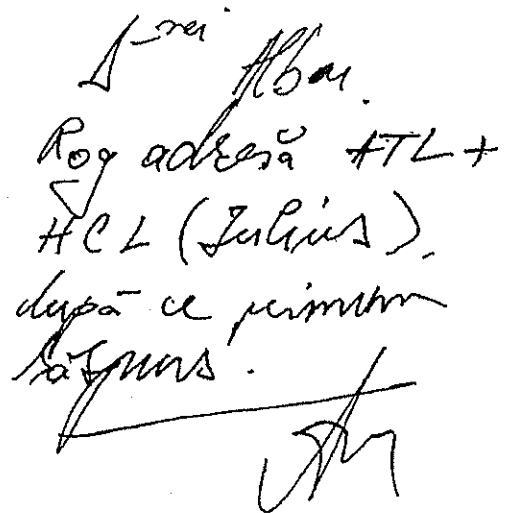 D-rei Alban.
Rog adresă ATL +
HCL (Iulius),
după ce primim
răspuns.